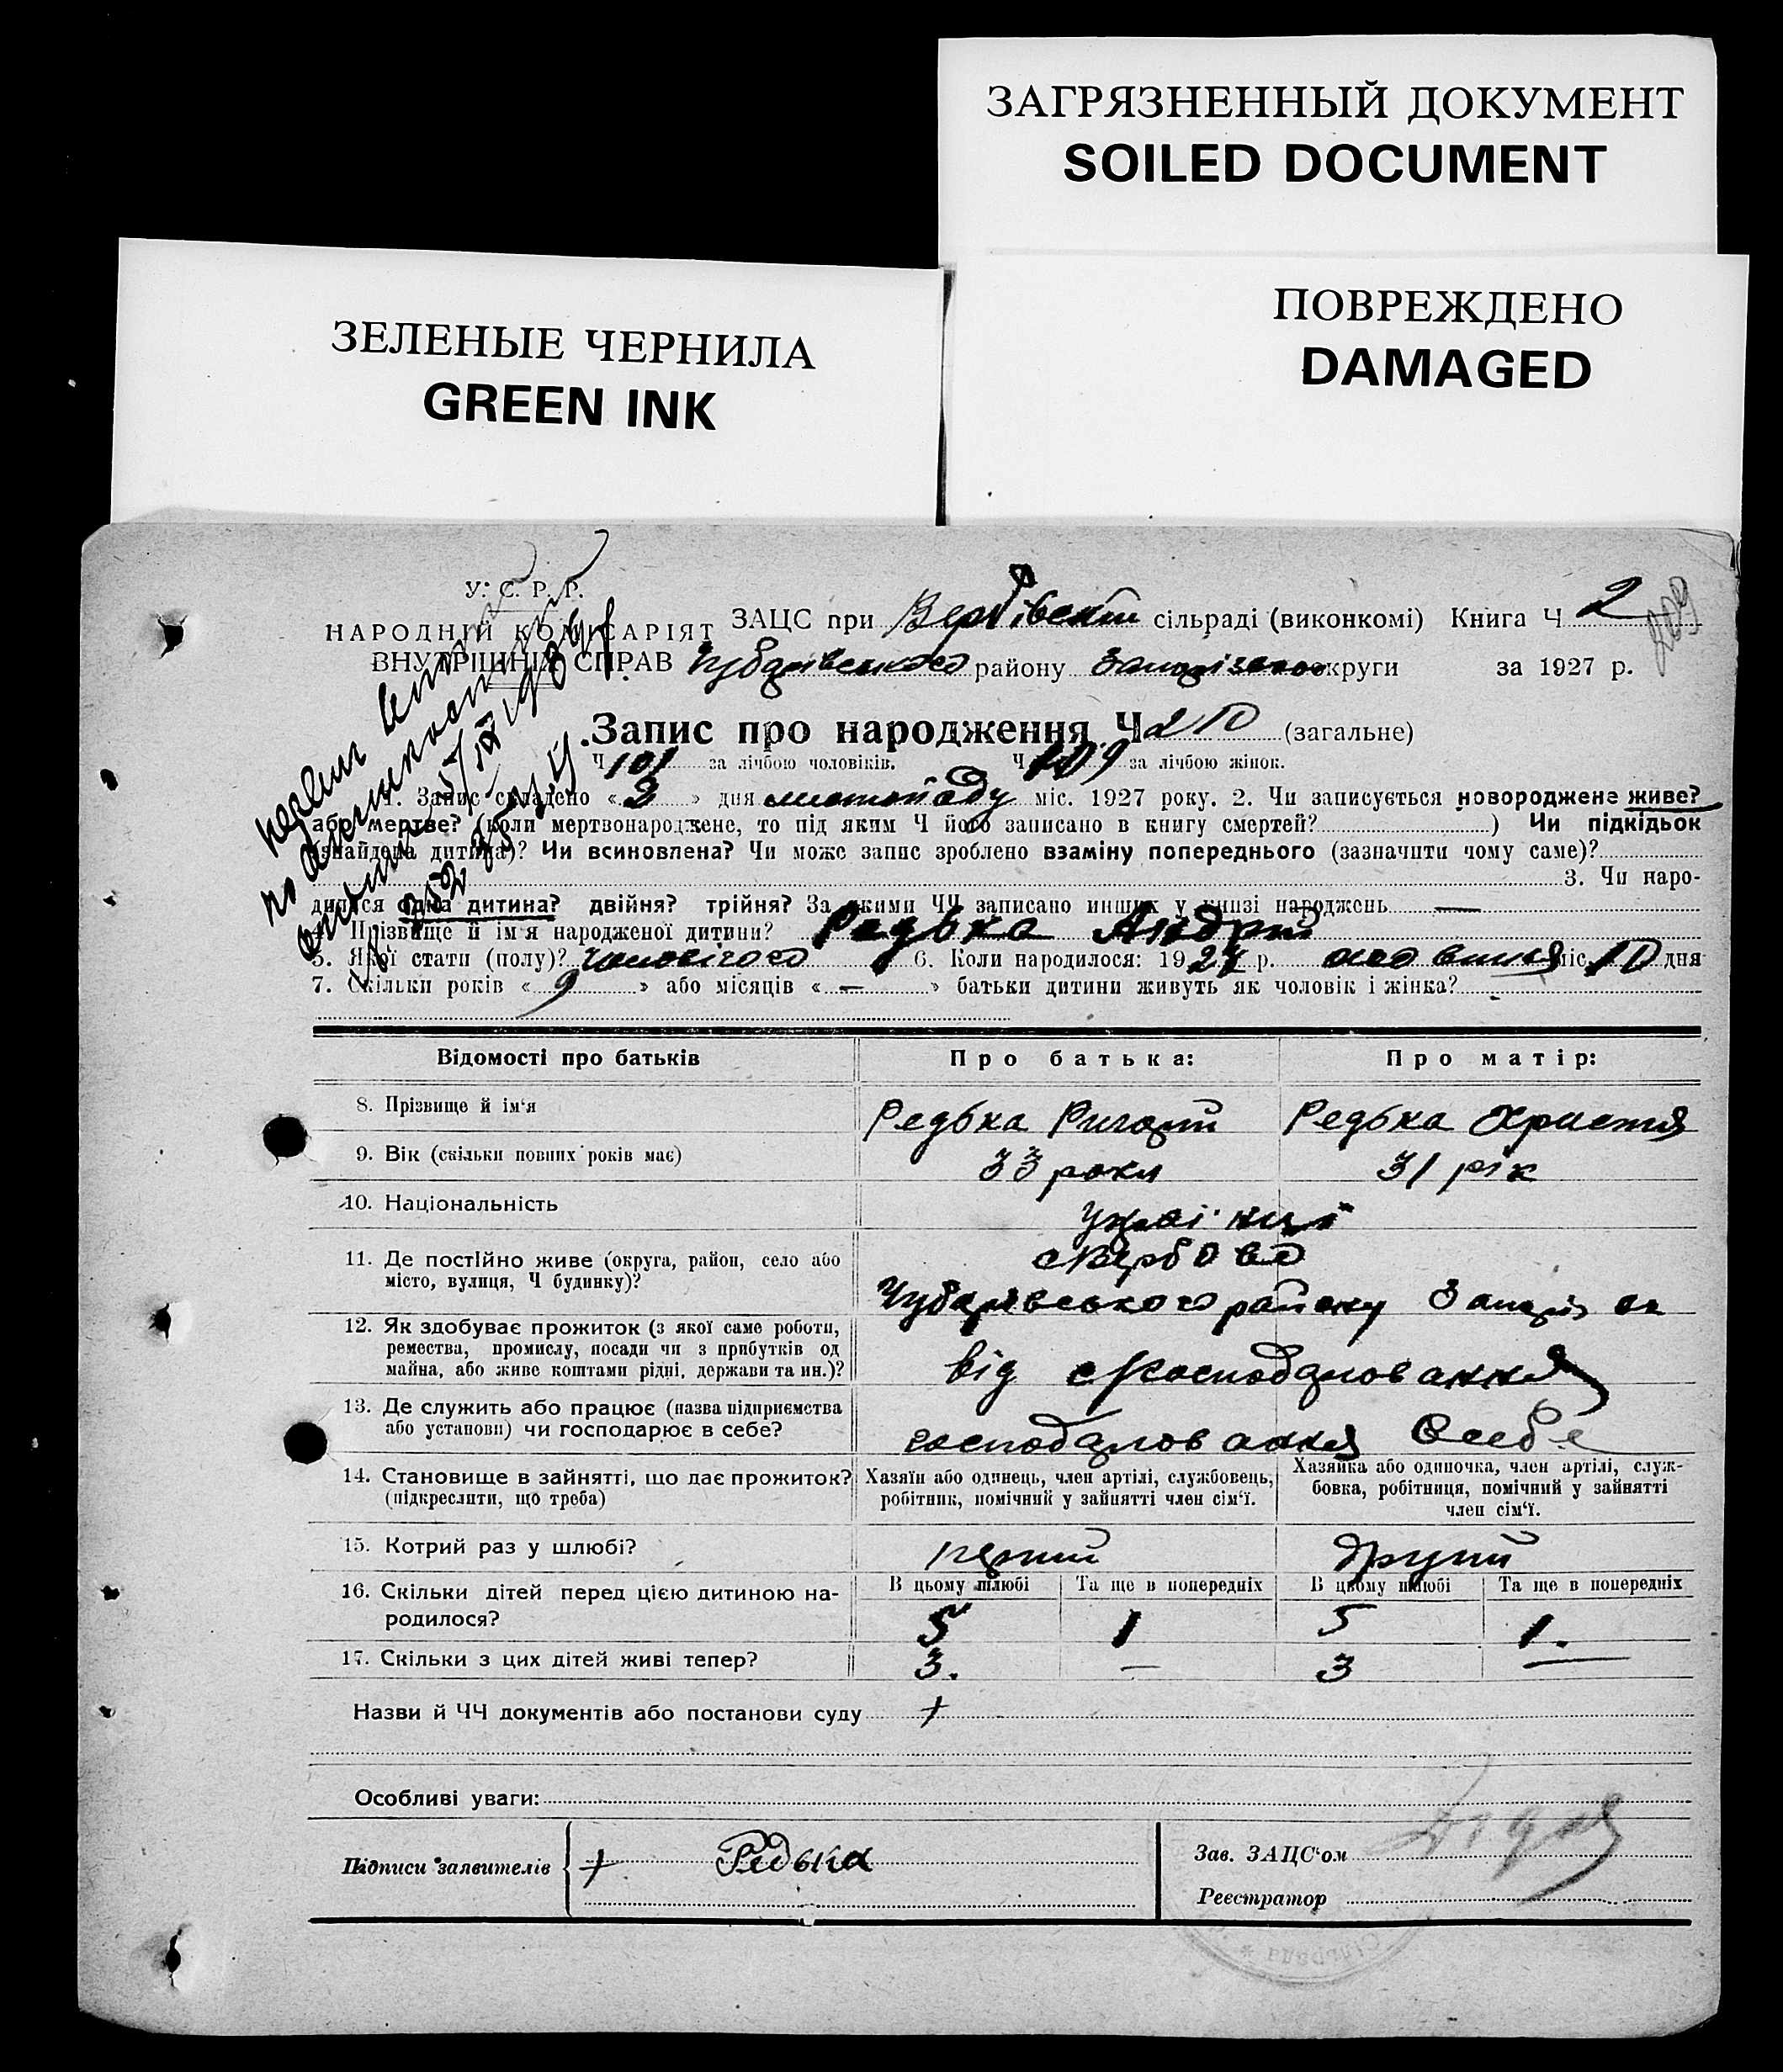 ЗАГРЯЗНЕННЫЙ ДОКУМЕНТ
SOILED DOCUMENT
ПОВРЕЖДЕНО
DAMAGED
ЗЕЛЕНЫЕ ЧЕРНИЛА
GREEN INK
У. С. Р. Р.
НАРОДНІЙ КОМІСАРІЯТ
ВНУТРІШНІХ СПРАВ
ЗАЦС при Вербівській сільраді (виконкомі) Книга Ч 2
209
Чубарівського району Запорізької округи за 1927 р.
Запис про народження Ч 210 (загальне)
Ч 101 за лічбою чоловіків. Ч 109 за лічбою жінок.
1. Запис складено « 3 » дня листопаду міс. 1927 року. 2. Чи записується новороджене живе?
або мертве? (коли мертвонароджене, то під яким Ч його записано в книгу смертей? ) Чи підкідьок
(знайдена дитина)? Чи всиновлена? Чи може запис зроблено взаміну попереднього (зазначити чому саме)?
3. Чи наро-
дилися одна дитина? двійня? трійня? За якими ЧЧ записано инших у книзі народжень —
4. Прізвище й ім'я народженої дитини? Редька Андрій
5. Якої стати (полу)? Чоловічого 6. Коли народилося: 1927 р. міс. 10 дня
7. Скільки років « 9 » або місяців « — » батьки дитини живуть як чоловік і жінка?
Відомості про батьків
Про батька:
Про матір:
8. Прізвище й ім'я
Редька Редька Христя
9. Вік (скільки повних років має)
33 роки 31 рік
10. Національність
11. Де постійно живе (округа, район, село або
місто, вулиця, Ч будинку)?
с Вербове
Чубарівського району Запоріз ок
12. Як здобуває прожиток (з якої саме роботи,
ремества, промислу, посади чи з прибутків од
майна, або живе коштами рідні, держави та ин.)?
від с господарювання
13. Де служить або працює (назва підприємства
або установи) чи господарює в себе?
господарювання Осебе
14. Становище в зайнятті, що дає прожиток?
(підкреслити, що треба)
Хазяїн або одинець, член артілі, службовець,
робітник, помічний у зайнятті член сім'ї.
Хазяйка або одиночка, член артілі, служ-
бовка, робітниця, помічний у зайнятті
член сім'ї.
15. Котрий раз у шлюбі?
перший другий
16. Скільки дітей перед цією дитиною на-
родилося?
В цьому шлюбі Та ще в попередніх В цьому шлюбі Та ще в попередніх
5 1 5 1.
17. Скільки з цих дітей живі тепер?
3. — 3 —
Назви й ЧЧ документів або постанови суду +
Особливі уваги:
Підписи заявителів + Редька
Зав. ЗАЦС'ом
Реєстратор
Сільрада